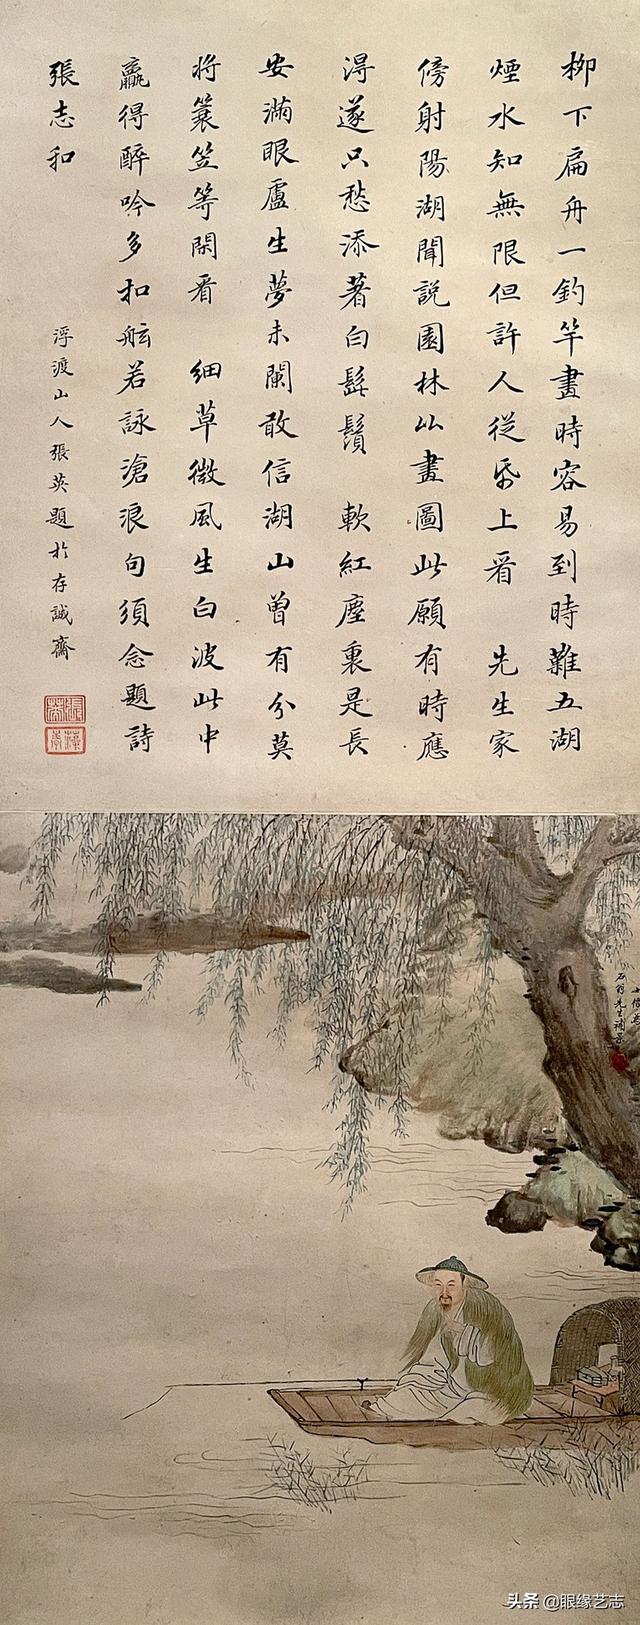 柳下扁舟一釣竿畫時容易到時難五湖
煙水知無限但許人從帋上看 先生家
傍射陽湖聞說園林似畫圖此願有時應
得遂只愁添著白髭鬚 軟紅塵裏是長
安滿眼盧生夢未闌敢信湖山曾有分莫
将蓑笠等閒看 細草微風生白波此中
贏得醉吟多扣舷若詠滄浪句須念題詩
張志和
浮渡山人張英題於存誠齋
張英
石翁先生補景
头条 @眼缘艺志